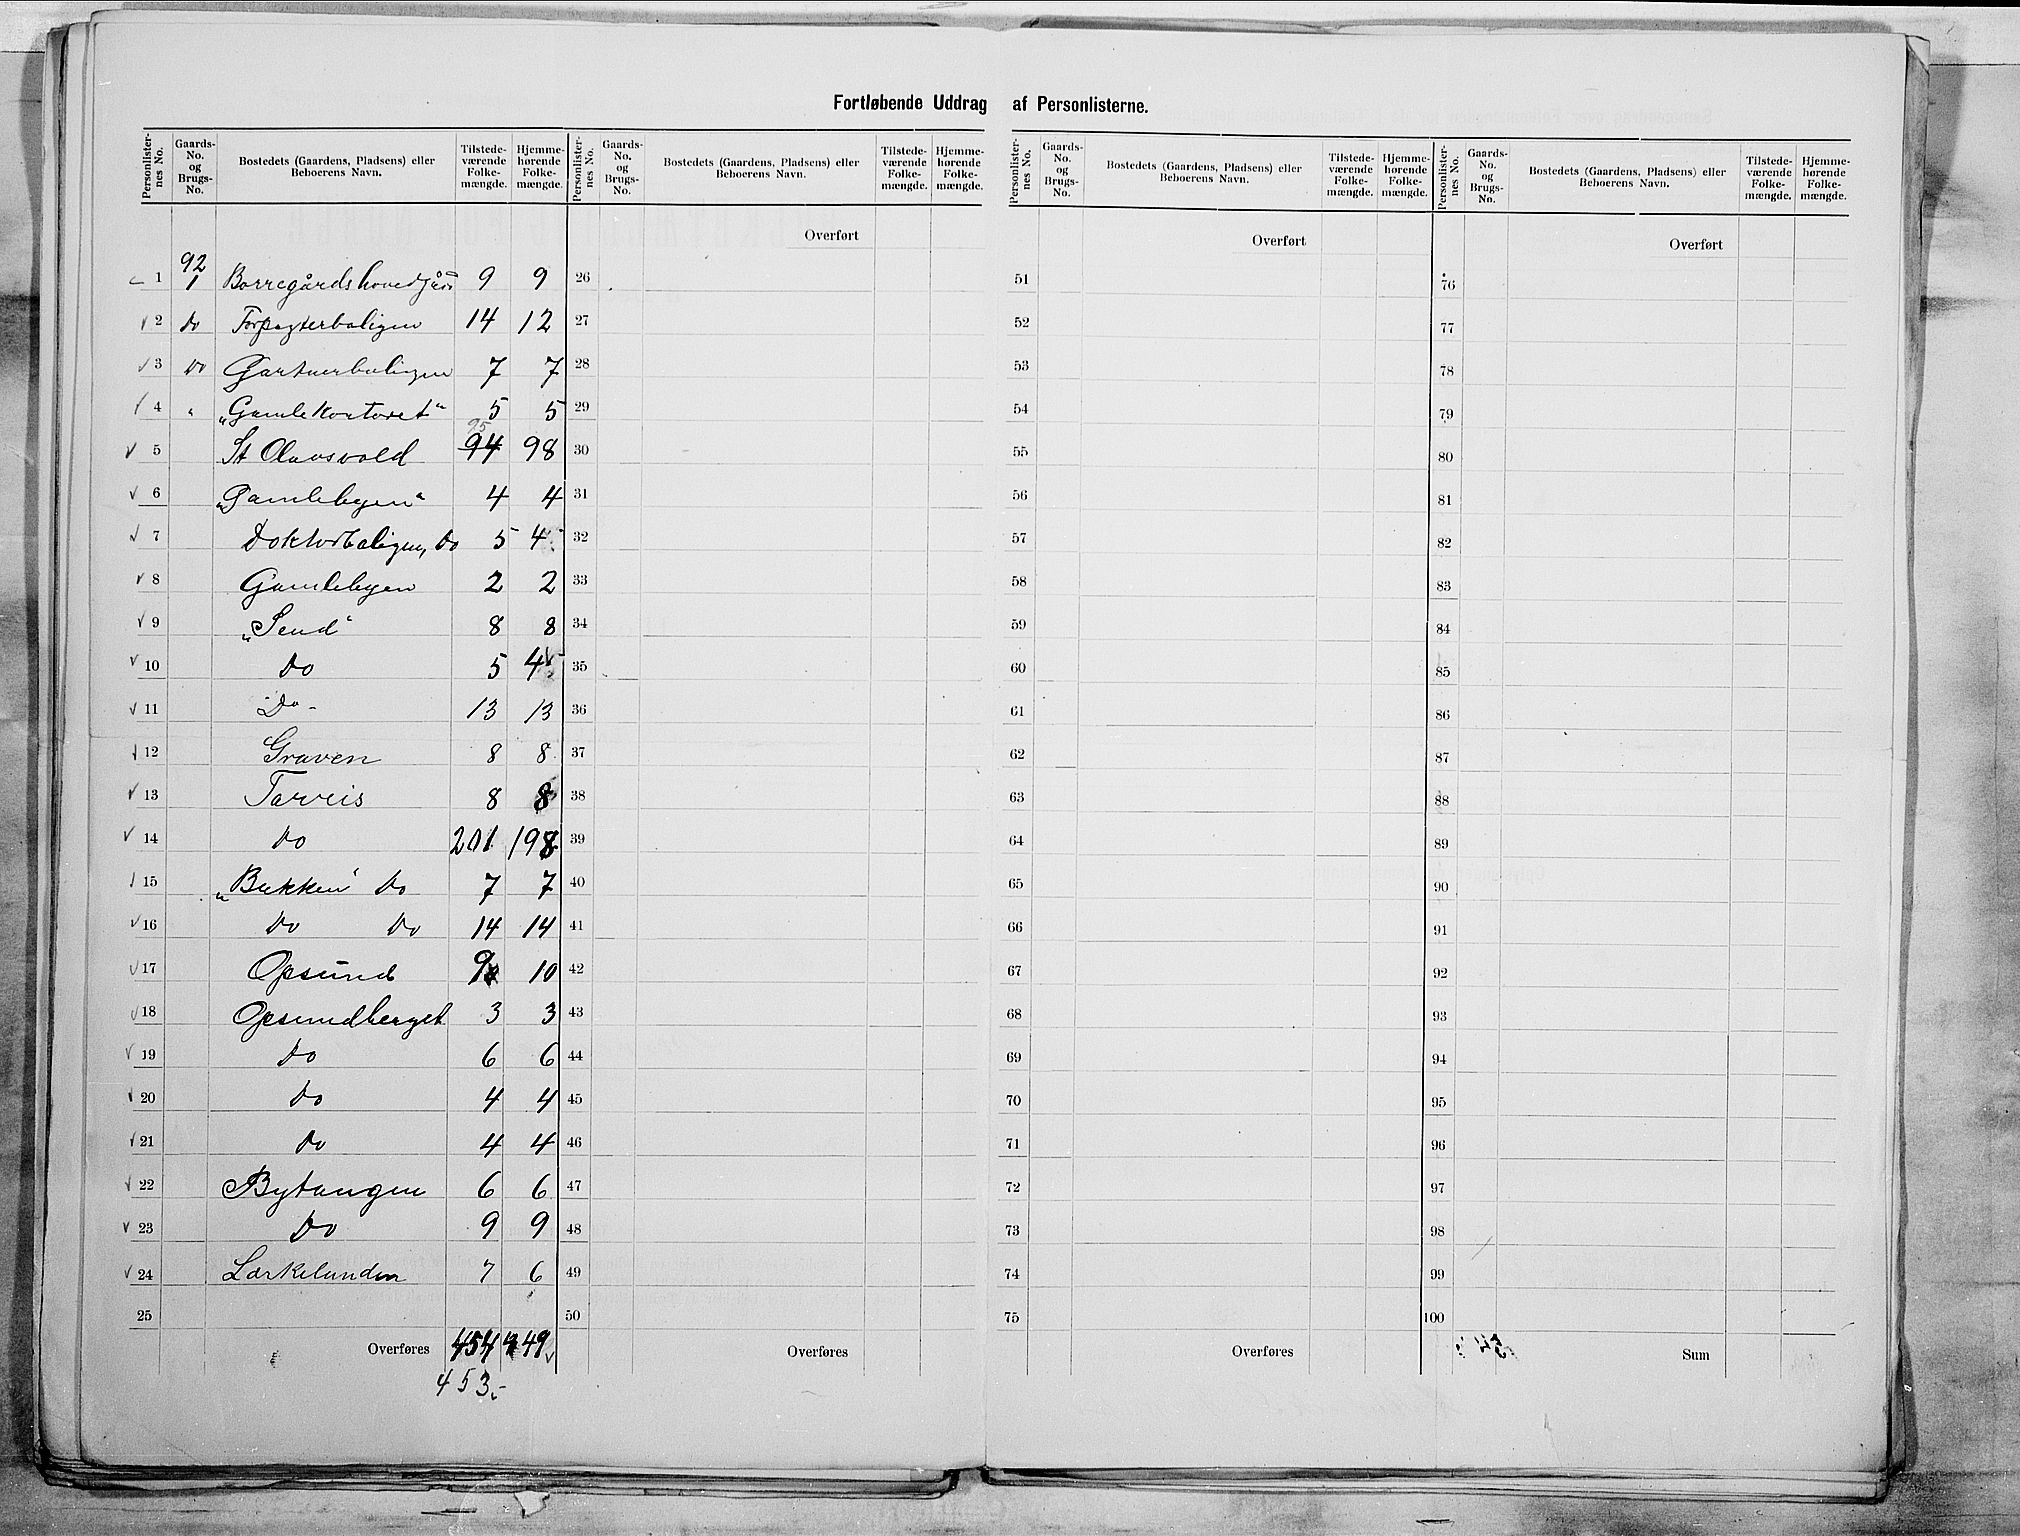 Fortløbende Uddrag af Personlisterne.
Personlister-nes No. Gaards-No. og Brugs-No. Bostedets (Gaardens, Pladsens) eller Beboerens Navn. Tilstede-værende Folke-mængde. Hjemme-hørende Folke-mængde. Personlister-nes No. Gaards-No. og Brugs-No. Bostedets (Gaardens, Pladsens) eller Beboerens Navn. Tilstede-værende Folke-mængde. Hjemme-hørende Folke-mængde. Personlister-nes No. Gaards-No. og Brugs-No. Bostedets (Gaardens, Pladsens) eller Beboerens Navn. Tilstede-værende Folke-mængde. Hjemme-hørende Folke-mængde. Personlister-nes No. Gaards-No. og Brugs-No. Bostedets (Gaardens, Pladsens) eller Beboerens Navn. Tilstede-værende Folke-mængde. Hjemme-hørende Folke-mængde.
Overført Overført Overført
92
1 1 Borregårds hovedgård 9 9 26 51 76
2 Do Forpagterboligen 14 12 27 52 77
3 Do Gartnerboligen 7 7 28 53 78
4 " „Gamlekontoret" 5 5 29 54 79
95
5 St Olavsvold 94 98 30 55 80
6 „Gamlebyen" 4 4 31 56 81
7 Doktorboligen, Do 5 4 32 57 82
8 Gamlebyen 2 2 33 58 83
9 „Send" 8 8 34 59 84
10 Do 5 4 35 60 85
11 Do - 13 13 36 61 86
12 Graven 8 8 37 62 87
13 Tarveis 8 8 38 63 88
14 Do 201 198 39 64 89
15 „Bakken" Do 7 7 40 65 90
16 Do Do 14 14 41 66 91
17 Opsund 9 10 42 67 92
18 Opsundberget 3 3 43 68 93
19 Do 6 6 44 69 94
20 Do 4 4 45 70 95
21 Do 4 4 46 71 96
22 Bytangen 6 6 47 72 97
23 Do 9 9 48 73 98
24 Lærkelunden 7 6 49 74 99
25 50 75 100
Overføres 454 449 Overføres Overføres Sum
453.-